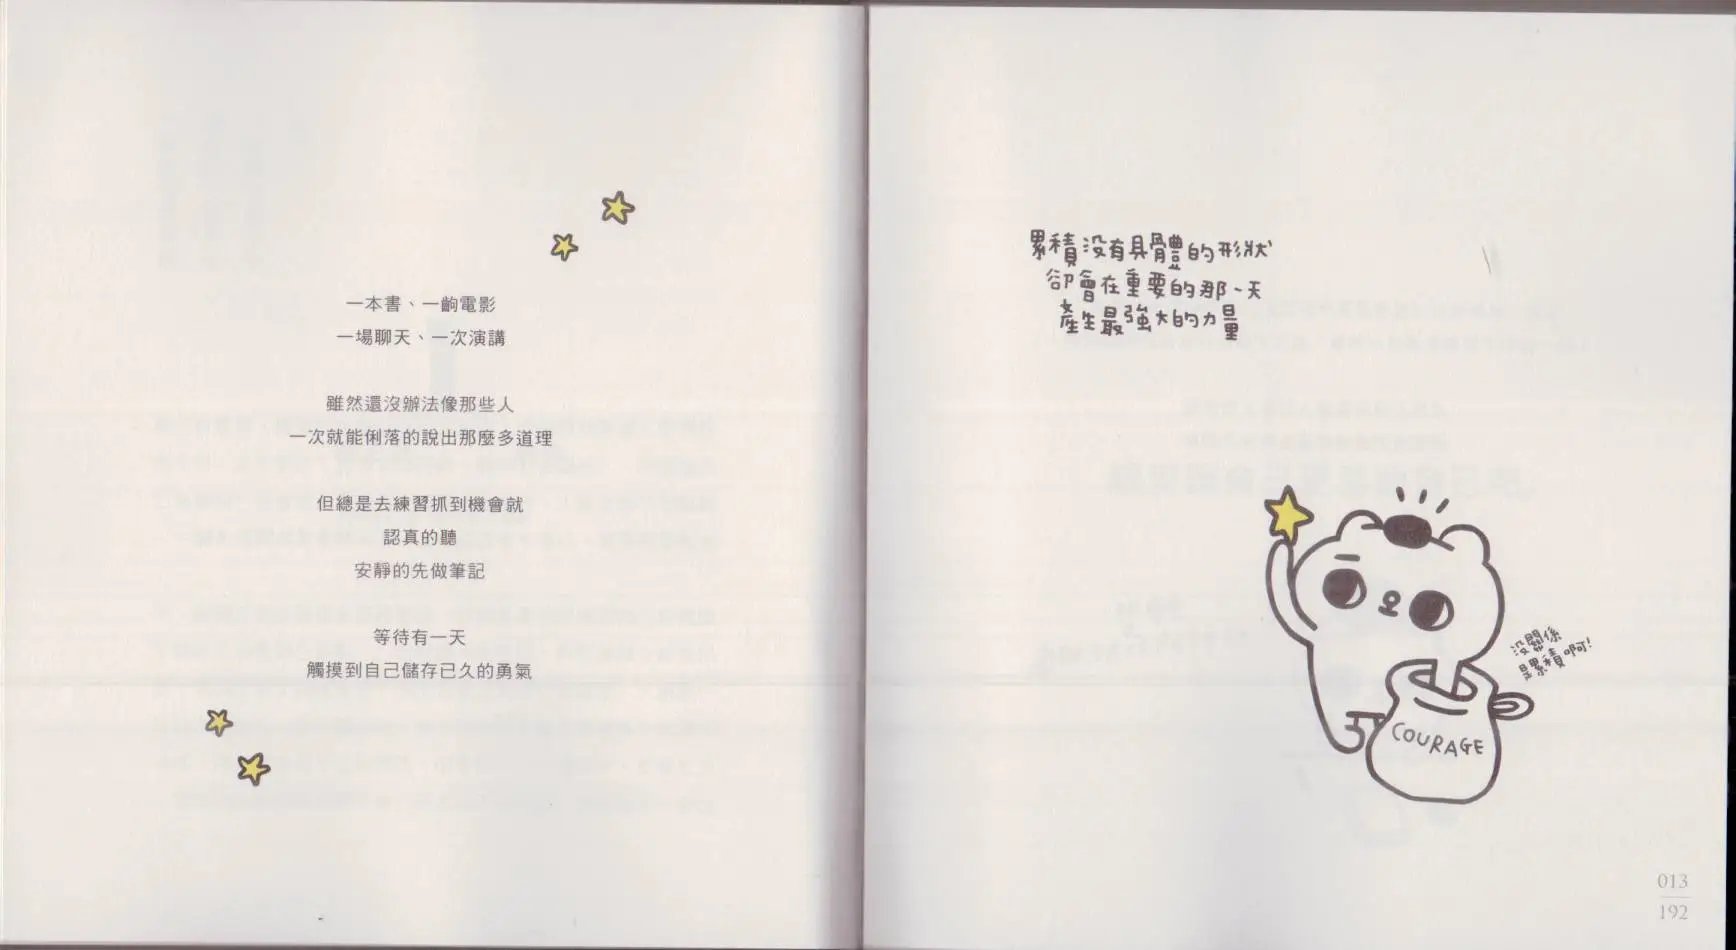 一本書、一齣電影
一場聊天、一次演講
雖然還沒辦法像那些人
一次就能俐落的說出那麼多道理
但總是去練習抓到機會就
認真的聽
安靜的先做筆記
等待有一天
觸摸到自己儲存已久的勇氣
累積沒有具體的形狀
卻會在重要的那一天
產生最強大的力量
沒關係
是累積啊!
COURAGE
013
192